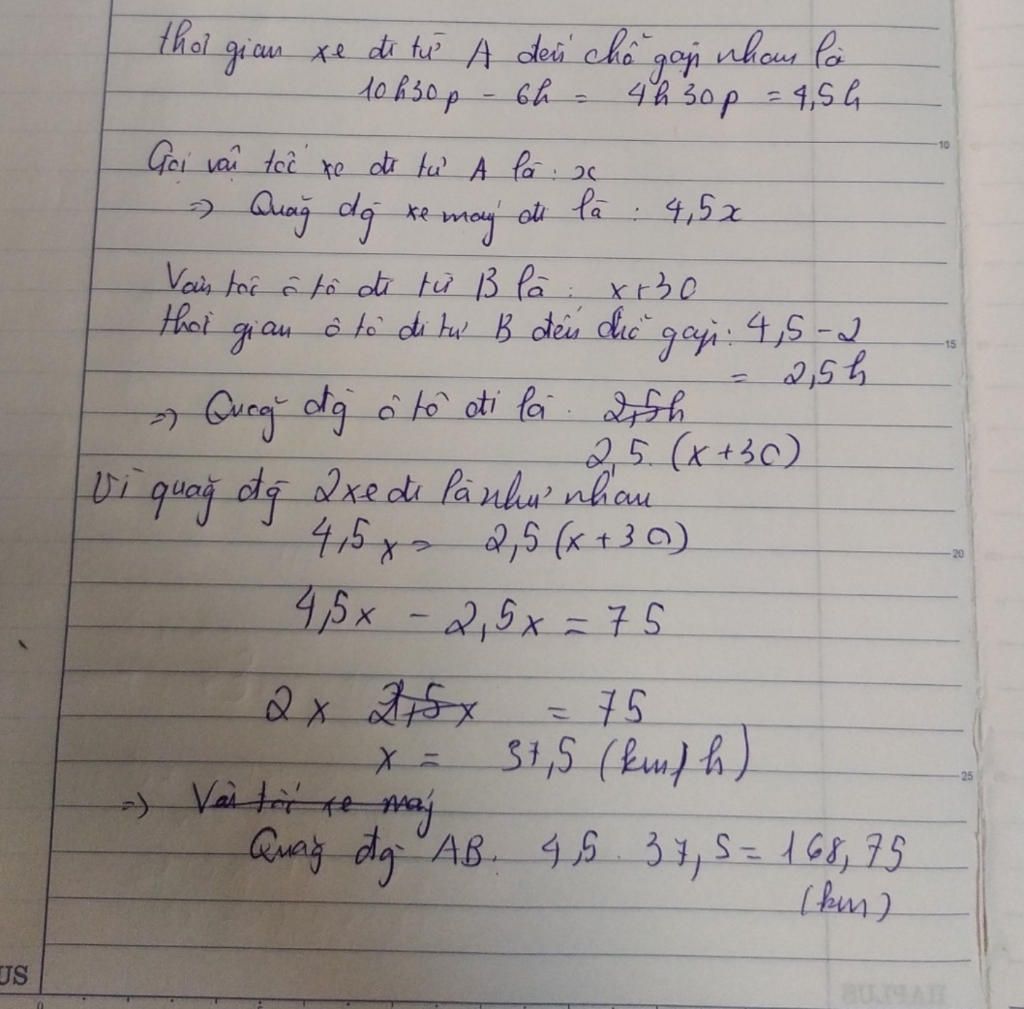 Thời gian xe đi từ A đến chỗ gặp nhau là
10h30p - 6h = 4h30p = 4,5h
10
Gọi vài tốc xe đi từ A là : x
=> Quãg đg xe máy đi là : 4,5x
Vận tốc ô tô đi từ B là : x+30
Thời gian ô tô đi từ B đến chỗ gặp : 4,5 - 2
15
= 2,5h
=> Quãg đg ô tô đi là . 2,5h
2,5. (x+30)
Vì quãg đg 2xe đi là như nhau
4,5x = 2,5(x+30)
20
4,5x - 2,5x = 75
2x 2,5x = 75
x = 37,5 (km/h)
25
=> Vài tốc xe máy
Quãg đg AB. 4,5 . 37,5 = 168,75
(km)
US
HAPLUS
0